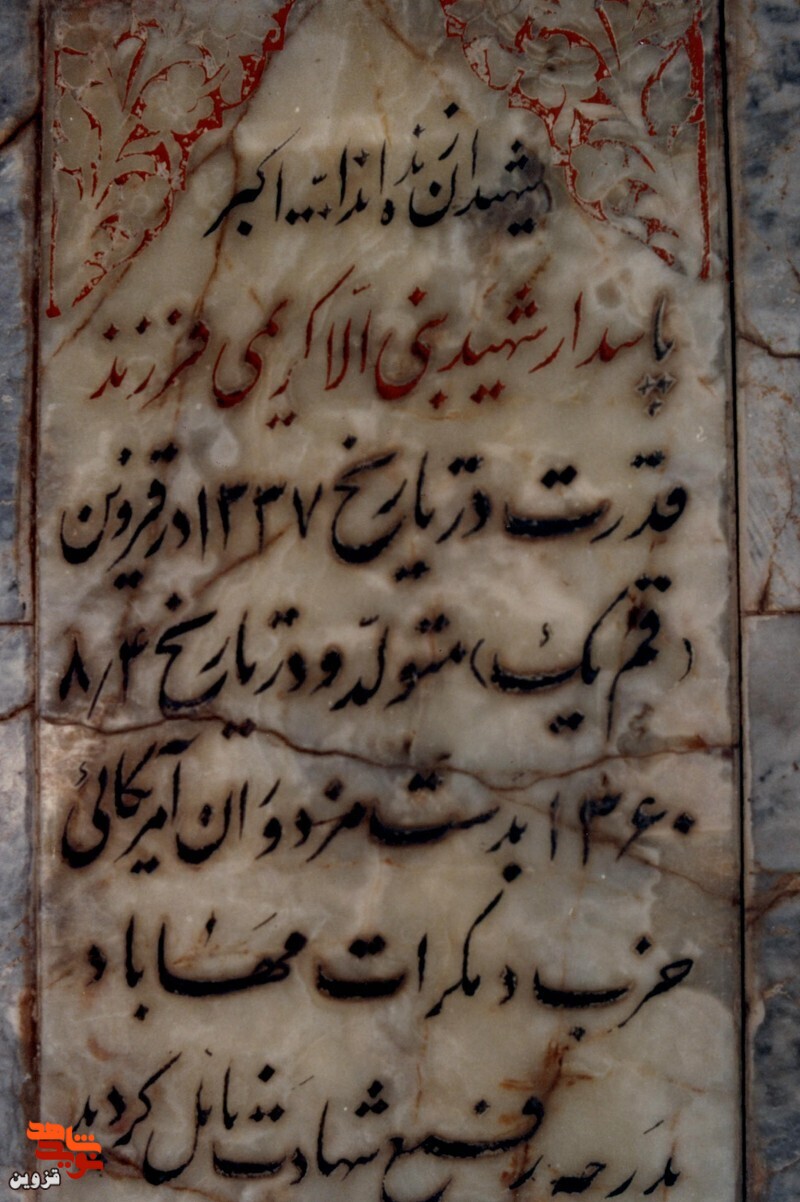 شهیدان زنده اند الله اکبر
پاسدار شهید بنی الا کریمی فرزند
قدرت در تاریخ ۱۳۳۷ در قزوین
(قم یک) متولد و در تاریخ ۸/۴
۱۳۶۰ بدست مزدوران آمریکائی
حزب دمکرات مهاباد
بدرجه رفیع شهادت نایل گردید
نوید شاهد
قزوین